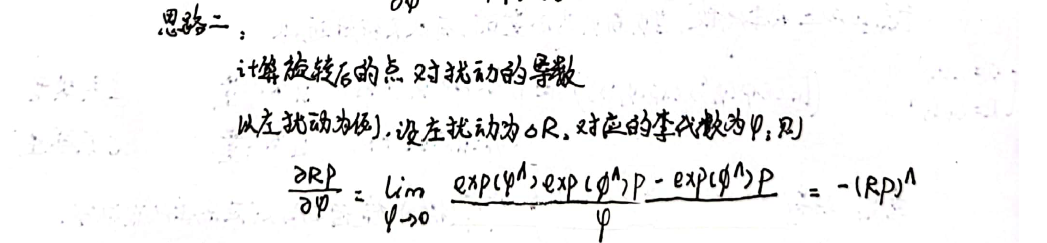 思路二:
计算旋转后的点对扰动的导数
以左扰动为例,设左扰动为△R,对应的李代数为φ,则
∂Rp/∂φ = lim φ→0 (exp(φ^)exp(ϕ^)p - exp(ϕ^)p)/φ = -(Rp)^